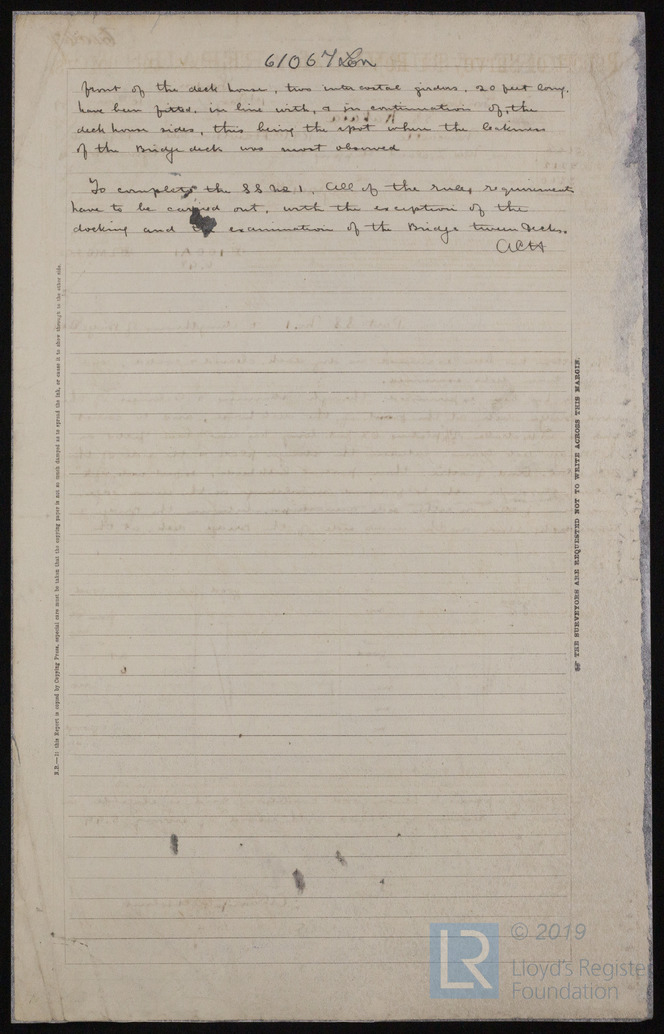 61067 Lon
front of the deck house, two intercostal girders, 20 feet long,
have been fitted, in line with, & in continuation of, the
deck house sides, this being the spot where the leakiness
of the Bridge deck was most observed
To complete the SS No 1, All of the rules requirements
have to be carried out, with the exception of the
docking and examination of the Bridge tween Decks.
ACH
N.B.—If this Report is copied by Copying Press, especial care must be taken that the copying paper is not so much damped as to spread the ink, or cause it to show through to the other side.
THE SURVEYORS ARE REQUESTED NOT TO WRITE ACROSS THIS MARGIN.
LR
© 2019
Lloyd's Register
Foundation